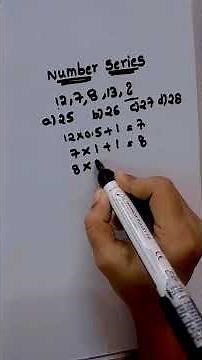 Number Series
12,7,8,13,?
a) 25 b) 26 c) 27 d) 28
12 x 0.5 + 1 = 7
7 x 1 + 1 = 8
8 x